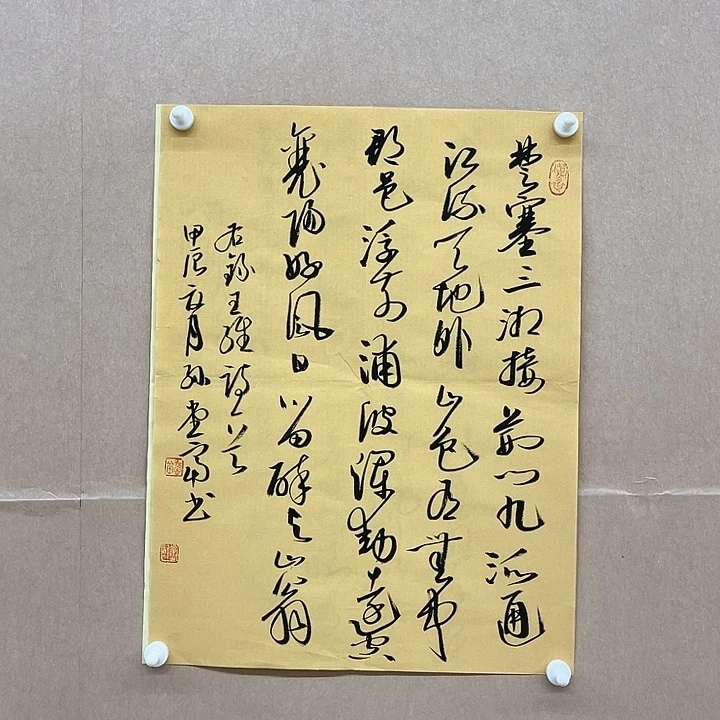 楚塞三湘接荊门九派通
江流天地外山色有無中
郡邑浮前浦波瀾動遠空
襄陽好風日留醉与山翁
右錄王維詩一首
甲辰夏月孙富书